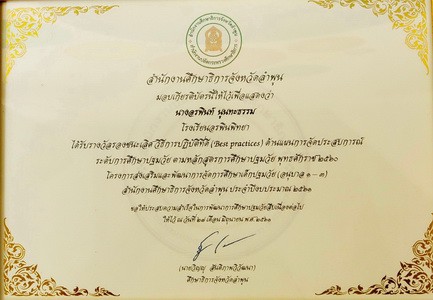 สำนักงานศึกษาธิการจังหวัดลำพูน
มอบเกียรติบัตรนี้ให้ไว้เพื่อแสดงว่า
นางอรพินท์ นุนทะธรรม
โรงเรียนอรพินพิทยา
ได้รับรางวัลรองชนะเลิศ วิธีการปฏิบัติที่ดี (Best practices) ด้านแผนการจัดประสบการณ์
ระดับการศึกษาปฐมวัย ตามหลักสูตรการศึกษาปฐมวัย พุทธศักราช ๒๕๖๐
โครงการส่งเสริมและพัฒนาการจัดการศึกษาเด็กปฐมวัย (อนุบาล ๑ - ๓)
สำนักงานศึกษาธิการจังหวัดลำพูน ประจำปีงบประมาณ ๒๕๖๑
ขอให้ประสบความสำเร็จในการพัฒนาการศึกษาปฐมวัยสืบเนื่องต่อไป
ให้ไว้ ณ วันที่ ๒๘ เดือน มิถุนายน พ.ศ. ๒๕๖๑
สันติภาพวิวัฒนา)
ศึกษาธิการจังหวัดลำพูน